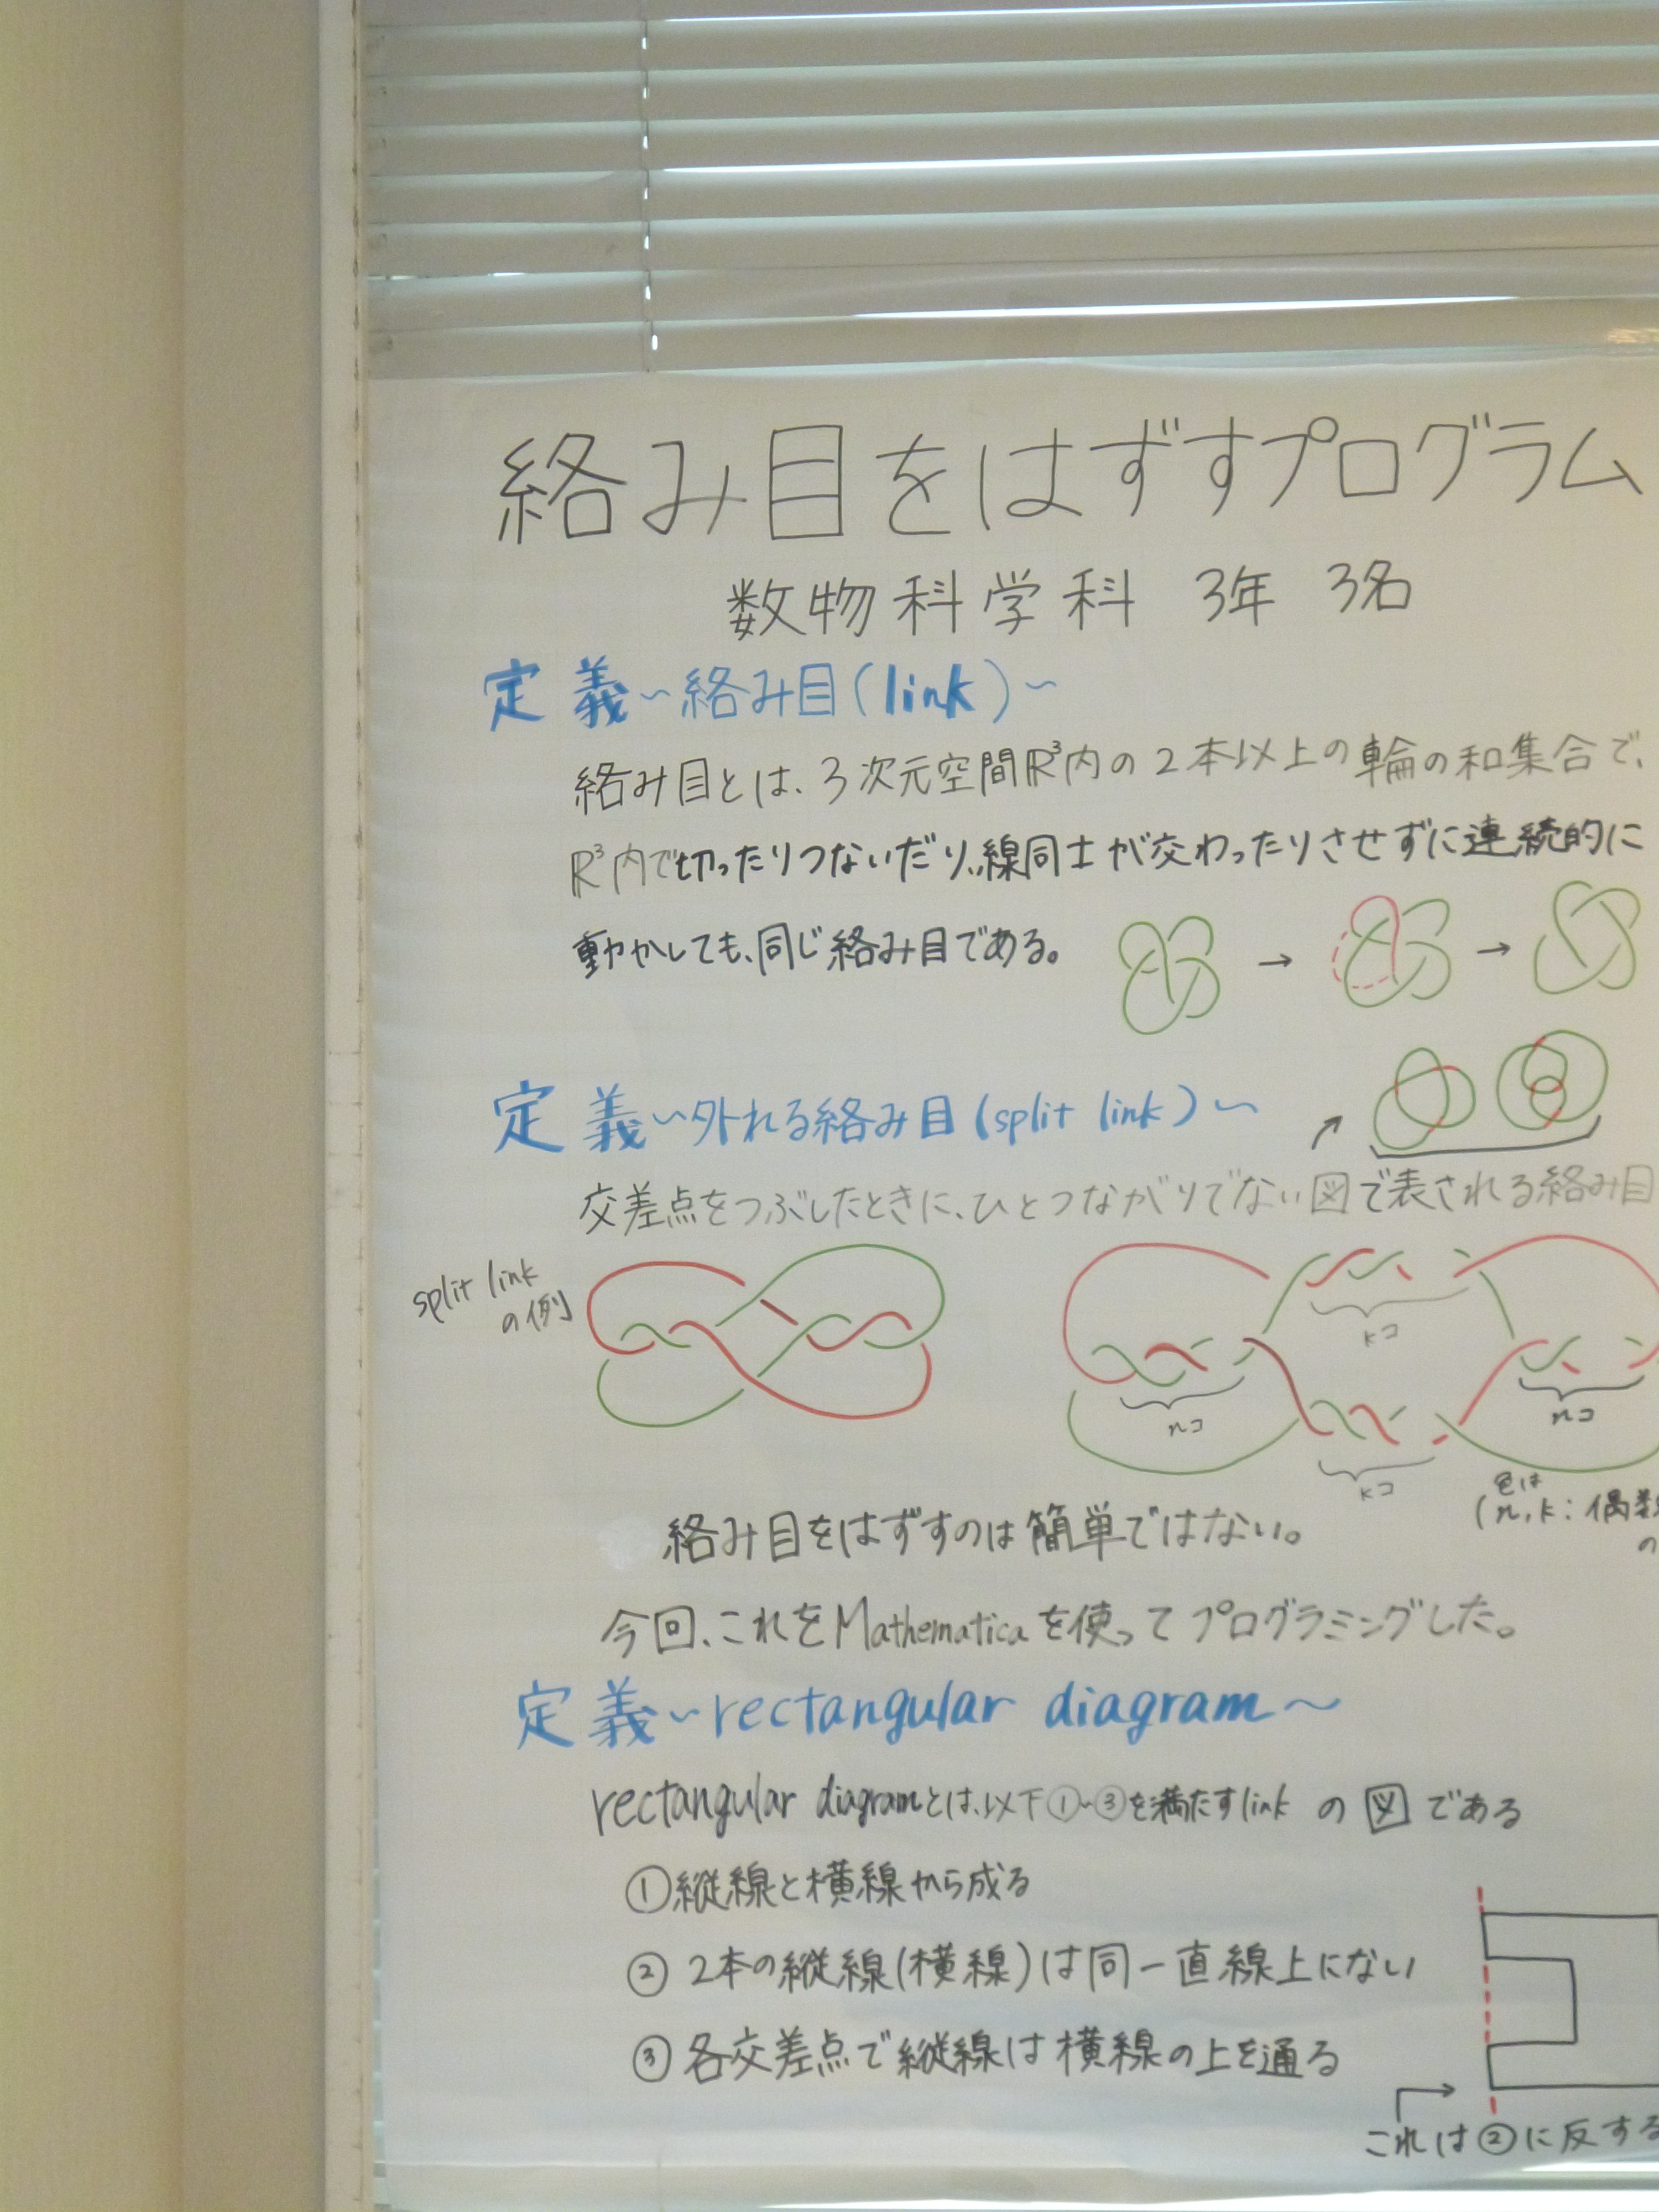 絡み目をはずすプログラム
数物科学科 3年 3名
定義~絡み目(link)~
絡み目とは、3次元空間ℝ³内の2本以上の輪の和集合で、
ℝ³内で切ったりつないだり、線同士が交わったりさせずに連続的に
動かしても、同じ絡み目である。
定義~外れる絡み目(split link)~
交差点をつぶしたときに、ひとつながりでない図で表される絡み目
split link
の例
kコ
nコ
nコ
kコ
色は
(n, k: 偶数
の
絡み目をはずすのは簡単ではない。
今回、これをMathematicaを使ってプログラミングした。
定義~rectangular diagram~
rectangular diagramとは、以下①~③を満たすlinkの図である
①縦線と横線から成る
② 2本の縦線(横線)は同一直線上にない
③ 各交差点で縦線は横線の上を通る
これは②に反する